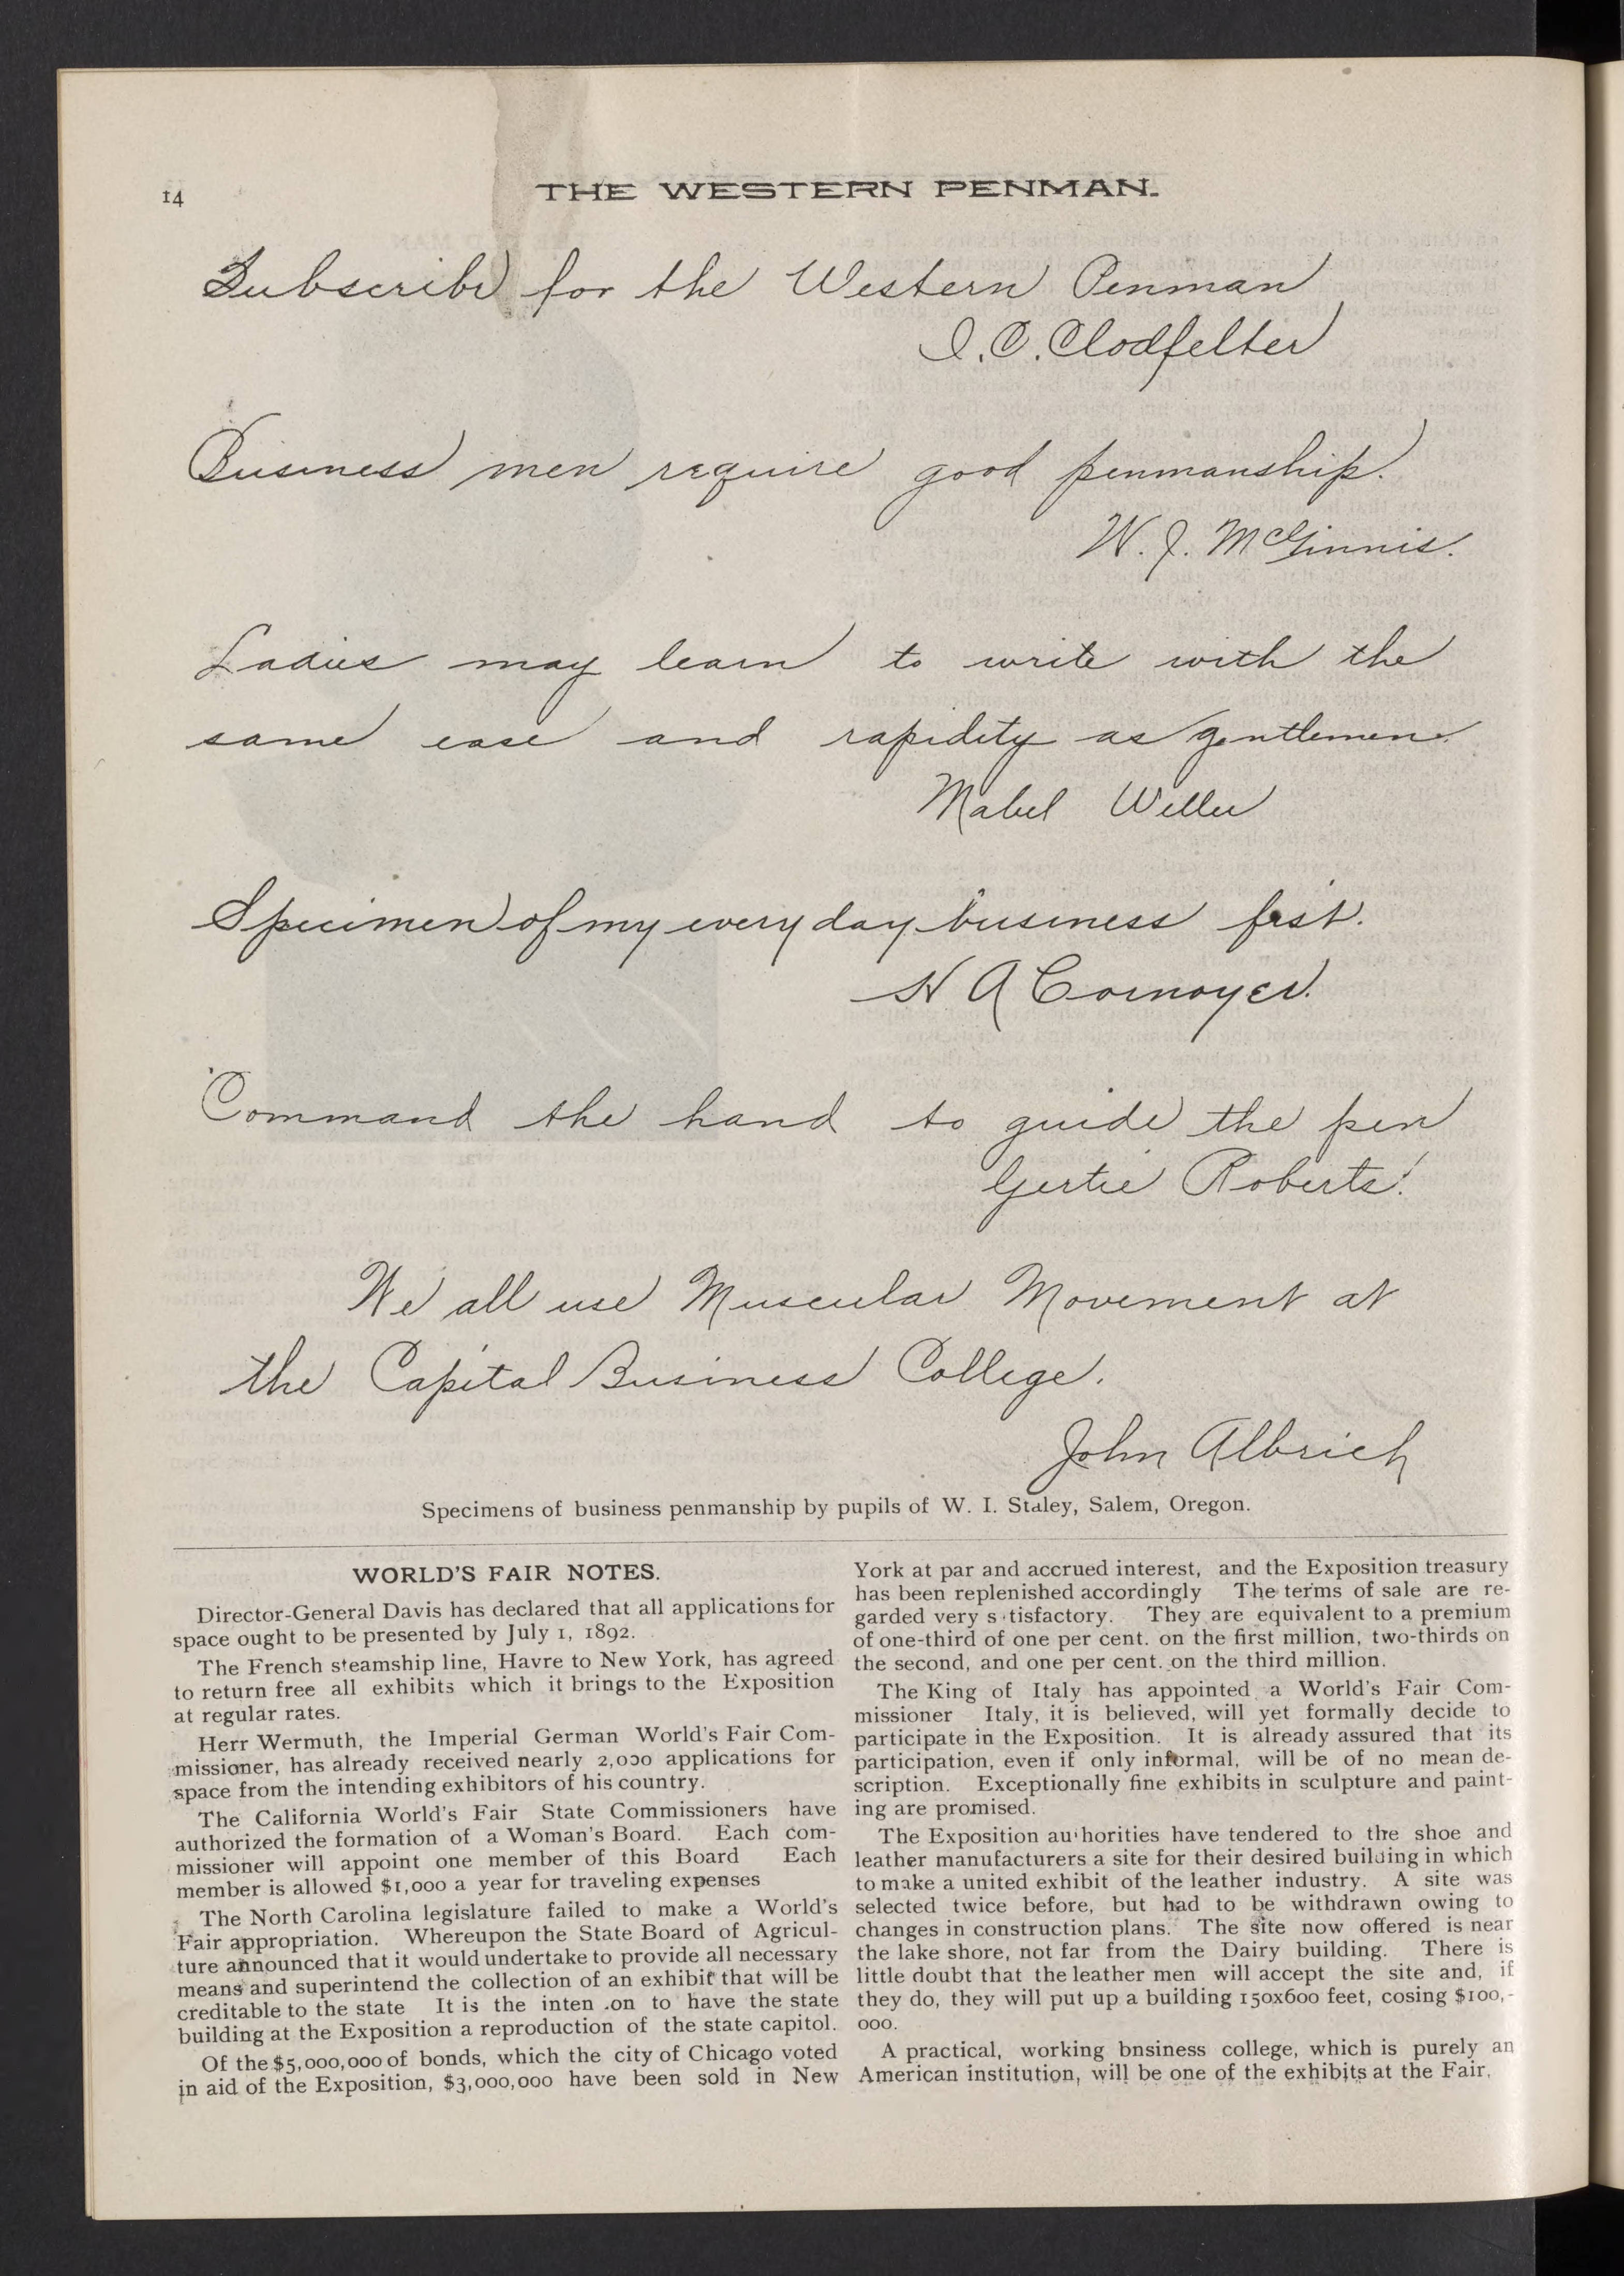 14
THE WESTERN PENMAN.
Subscribe for the Western Penman
I. C. Clodfelter
Business men require good penmanship.
W. J. McGinnis.
Ladies may learn to write with the
same ease and rapidity as gentlemen.
Mabel Weller
Specimen of my every day business fist.
H A Cornoyer.
Command the hand to guide the pen
Gertie Roberts.
We all use Muscular Movement at
the Capital Business College.
John Albrich
Specimens of business penmanship by pupils of W. I. Staley, Salem, Oregon.
WORLD'S FAIR NOTES.
Director-General Davis has declared that all applications for
space ought to be presented by July 1, 1892.
The French steamship line, Havre to New York, has agreed
to return free all exhibits which it brings to the Exposition
at regular rates.
Herr Wermuth, the Imperial German World's Fair Com-
missioner, has already received nearly 2,000 applications for
space from the intending exhibitors of his country.
The California World's Fair State Commissioners have
authorized the formation of a Woman's Board. Each com-
missioner will appoint one member of this Board Each
member is allowed $1,000 a year for traveling expenses
The North Carolina legislature failed to make a World's
Fair appropriation. Whereupon the State Board of Agricul-
ture announced that it would undertake to provide all necessary
means and superintend the collection of an exhibit that will be
creditable to the state It is the inten on to have the state
building at the Exposition a reproduction of the state capitol.
Of the $5,000,000 of bonds, which the city of Chicago voted
in aid of the Exposition, $3,000,000 have been sold in New
York at par and accrued interest, and the Exposition treasury
has been replenished accordingly The terms of sale are re-
garded very s tisfactory. They are equivalent to a premium
of one-third of one per cent. on the first million, two-thirds on
the second, and one per cent. on the third million.
The King of Italy has appointed a World's Fair Com-
missioner Italy, it is believed, will yet formally decide to
participate in the Exposition. It is already assured that its
participation, even if only informal, will be of no mean de-
scription. Exceptionally fine exhibits in sculpture and paint-
ing are promised.
The Exposition authorities have tendered to the shoe and
leather manufacturers a site for their desired building in which
to make a united exhibit of the leather industry. A site was
selected twice before, but had to be withdrawn owing to
changes in construction plans. The site now offered is near
the lake shore, not far from the Dairy building. There is
little doubt that the leather men will accept the site and, if
they do, they will put up a building 150x600 feet, cosing $100,-
000.
A practical, working bnsiness college, which is purely an
American institution, will be one of the exhibits at the Fair.